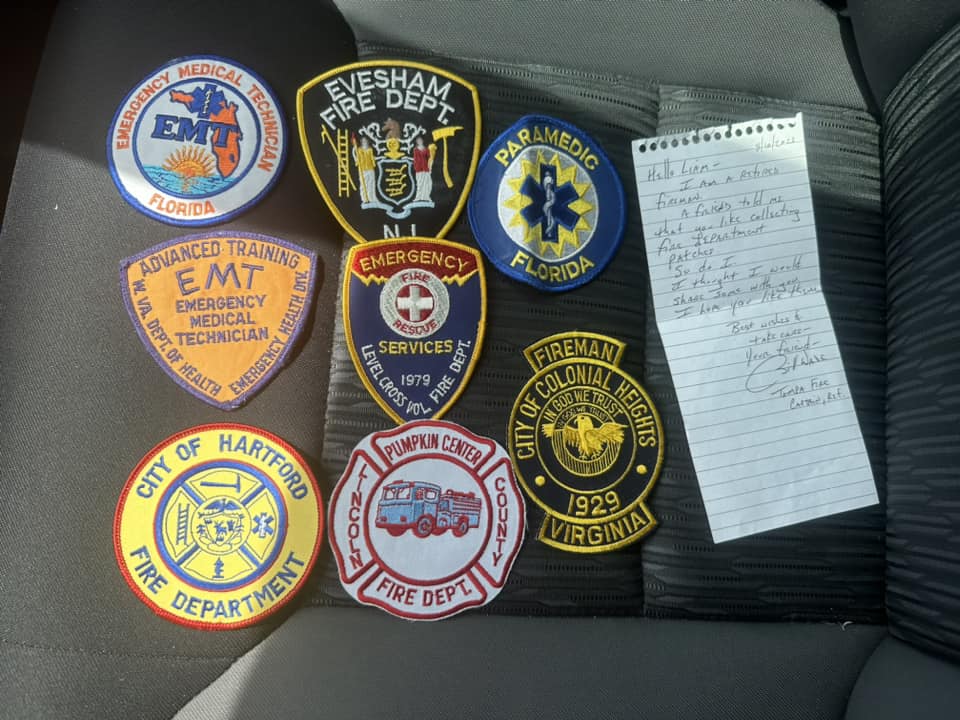 EMERGENCY MEDICAL TECHNICIAN
EMT
FLORIDA
EVESHAM
FIRE DEPT.
N.J.
PARAMEDIC
FLORIDA
ADVANCED TRAINING
EMT
EMERGENCY
MEDICAL
TECHNICIAN
W. VA. DEPT. OF HEALTH
EMERGENCY HEALTH DIV.
EMERGENCY
FIRE
RESCUE
SERVICES
1979
LEVEL CROSS VOL. FIRE DEPT.
FIREMAN
CITY OF COLONIAL HEIGHTS
IN GOD WE TRUST
1929
VIRGINIA
CITY OF HARTFORD
FIRE DEPARTMENT
PUMPKIN CENTER
LINCOLN
COUNTY
FIRE DEPT.
Hello Liam-
I am a retired
fireman.
A friend told me
that you like collecting
fire department
patches
So do I
I thought I would
share some with you
I hope you like them
Best wishes &
take care-
Your friend-
Tampa Fire
Captain, Ret.